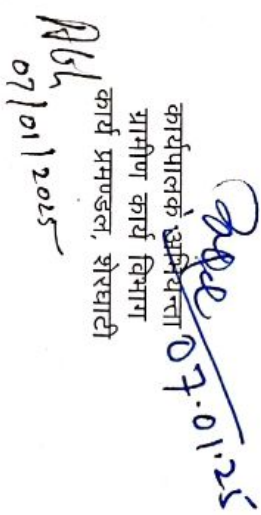 07.01.25
कार्यपालक अभियन्ता
ग्रामीण कार्य विभाग
कार्य प्रमण्डल, शेरघाटी
07/01/2025